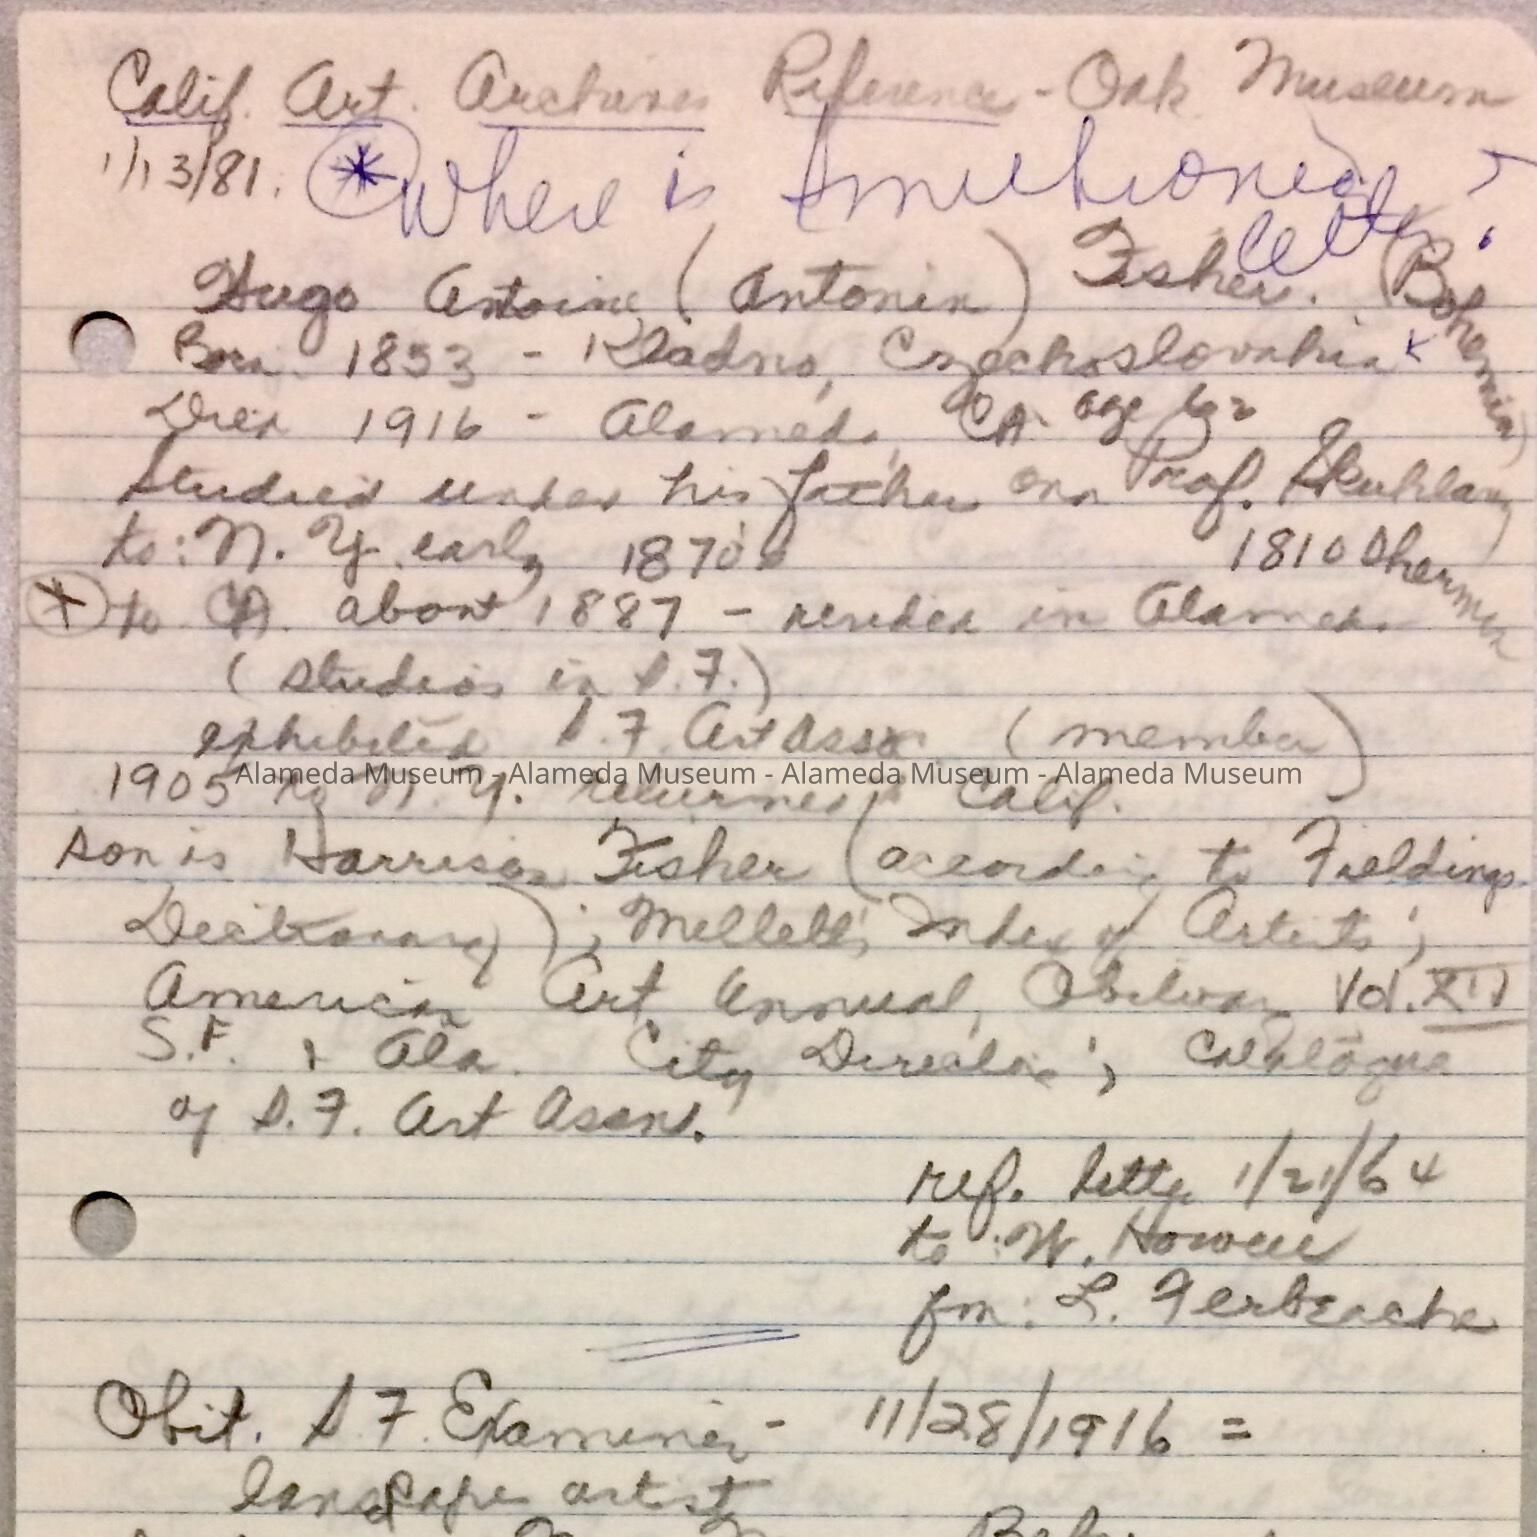 Calif. Art. Archives Reference - Oak Museum
1/13/81. * Where is
Hugo Antoine (Antonin) Fisher. (Bohemia)
Born 1853 - Kladno, Czechoslovakia
Died 1916 - Alameda, CA. age 62
Studied under his father and Prof. Skuhlavy
to: N.Y. early 1870's 1810 Sherman
* to CA. about 1887 - resided in Alameda.
(studios in S.F.)
exhibited S.F. Art Assn. (member)
1905 to N.Y. returned Calif.
Alameda Museum - Alameda Museum - Alameda Museum - Alameda Museum
son is Harrison Fisher (according to Fieldings
Dictionary); Mellett's Index of Artists;
American Art Annual, Obituary Vol. XIV
S.F. & Ala. City Directories; Catalogue
of S.F. Art Assns.
ref. letter 1/21/64
to W. Howell
fm: L. Ferbrache
Obit. S.F. Examiner - 11/28/1916 =
landscape artist